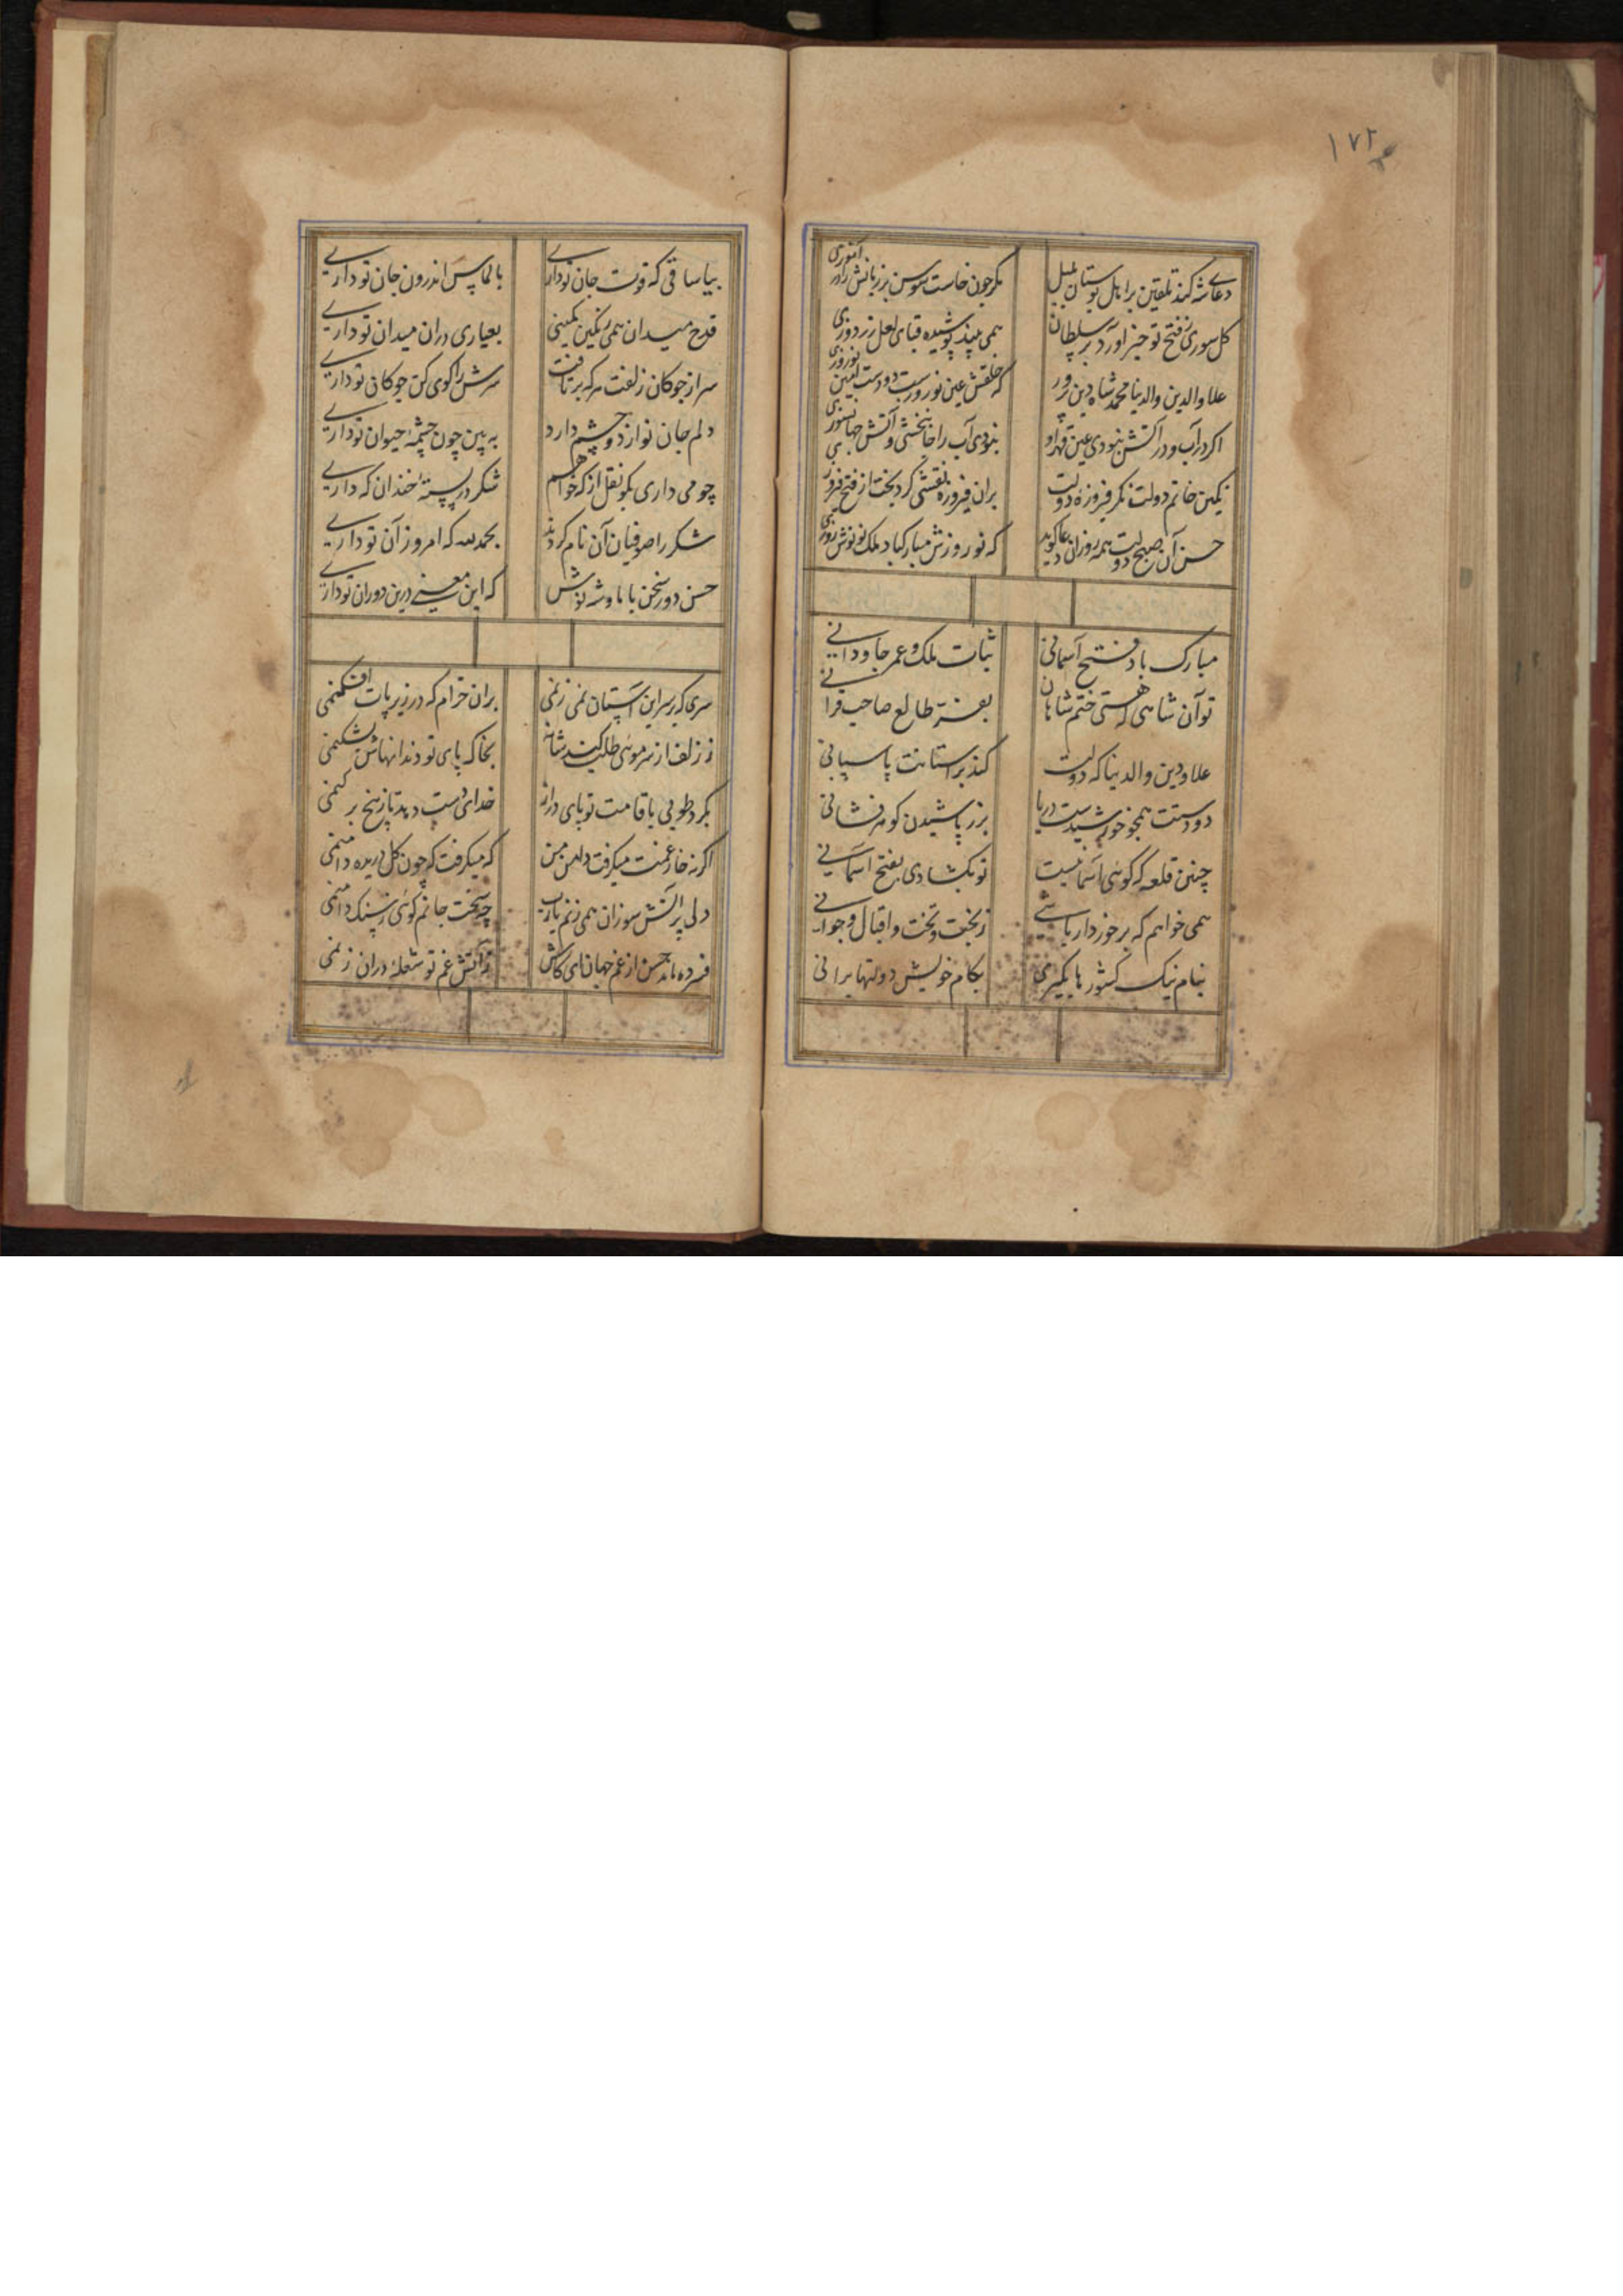 ۱۷۲
دعای شه کند تلقین بر اهل بوستان بلبل مکر چون خاست سوسن بر زبانش راند
کل سوری ز فتح تو خبر آورد بر سلطان همی بیند پوشیده قبای لعل زردوزی
علاء والدین والدنیا محمد شاه دین پرور که خلقش عین نوروزست و دست
اکر در آب و در آتش نبودی عین قهر او نبودی آب را جانبخشی و آتش جهانسوزی
نکین خاتم دولت نکر فیروزهٔ دولت بران فیروزه نقشی کرد بخت از فتح و فیروزی
حسن آن صبح دولت همه روزان دعا کوید که نوروزش مبارکباد ملک نو نوش روزی
مبارک باد فتح آسمانی ثبات ملک و عمر جاودانی
تو آن شاهی که هستی ختم شاهان بعز طالع صاحب قرانی
علاء دین والدنیا که دولت کند بر آستانت پاسبانی
دو دستت همچو خورشیدست و دریا بزر پاشیدن کوهر فشانی
چنین قلعه که کوئی آسمانیست تو بکشادی بفتح آسمانی
همی خواهم که برخوردار باشی ز بخت و تخت و اقبال و جوانی
بنام نیک کشورها بکیری بکام خویش دولتها برانی
بیا ساقی که قوت جان تو داری بالماس اندرون جان تو داری
قدح میدان همی رنکین نکینی بعیاری دران میدان تو داری
سر از چوکان زلفت هر که برتافت سرش را کوی کن چوکان تو داری
دلم جان نوازد و چشم دارد به بین چون چشمهٔ حیوان تو داری
چو می داری بکو نقل از که خواهم شکر در پستهٔ خندان که داری
شکر را صوفیان آن نام کردند بحمد الله که امروز آن تو داری
حسن دور سخن با ما و شه نوش که این معنی درین دوران تو داری
سری که بر سر این آستان نمی زنمی بران خرام که در زیر پات افکنمی
ز زلف از سر موئی طلب کند شانه بخاکپای تو دندانهاش بشکنمی
بکرد طوبی با قامت تو پای دراز خدای دست دهد تا ز بیخ بر کنمی
اکر نه خار غمت میکرفت دامن من که میکرفت که چون کل دریده دامنمی
دلی پر آتش سوزان همی زنم یارب چه سخت جانم کوئی ز سنک و آهنمی
فسرده ماند حسن از غم جهان ای کاش ز آتش غم تو شعلهٔ دران زنمی